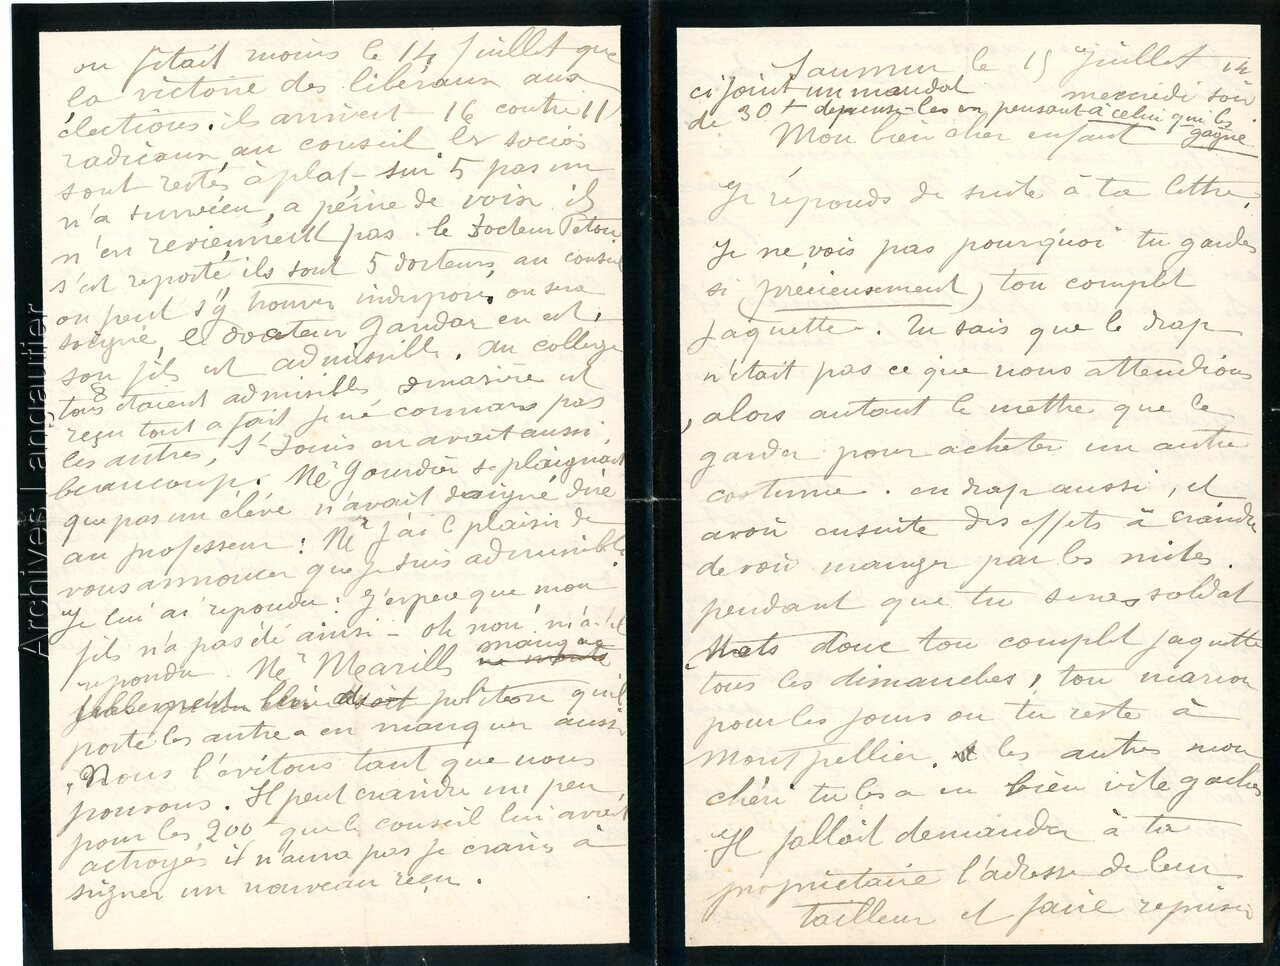 Saumur le 15 Juillet
ci joint un mandat mercredi soir
de 30 f depense-les en pensant à celui qui les
gagne
Mon bien cher enfant
Je réponds de suite à ta lettre,
Je ne vois pas pourquoi tu gardes
si (précieusement) ton complet
jaquette. Tu sais que le drap
n'était pas ce que nous attendions
, alors autant le mettre que le
garder pour acheter un autre
costume. en drap aussi, et
avoir ensuite des effets à craindre
de voir manger par les mites.
pendant que tu seras soldat
Mets donc ton complet jaquette
tous les dimanches, ton marron
pour les jours ou tu reste à
Montpellier. et les autres mon
chéri tu les a eu bien vite gachés
Il fallait demander à ta
propriétaire l'adresse de leur
tailleur et faire repriser
on fêtait moins le 14 Juillet que
la victoire des libéraux aux
élections. ils arrivent 16 contre 11
radicaux au conseil les socios
sont restés à plat - sur 5 pas un
n'a survécu, a peine de voix ils
n'en reviennent pas. le Docteur Peton
s'est reporté ils sont 5 docteurs au conseil
on peut s'y trouver indisposé, on sera
soigné, le docteur Gandar en est,
son fils est admissible. au college
tous 8 étaient admissibles
reçu tout a fait je ne connais pas
les autres, St Louis en avait aussi
beaucoup. Mr Gourdier se plaignait
que pas un élève n'avait daigné dire
au professeur : Mr j'ai le plaisir de
vous annoncer que je suis admissible
Je lui ai repondu : J'espere que mon
fils n'a pas été ainsi - oh non, m'a-t-il
repondu. Mr
manque
politesse qu'il
porte les autres a en manquer aussi
, Nous l'évitons tant que nous
pouvons. Il peut craindre un peu,
pour les 200 que le conseil lui avait
actroyés il n'aura pas je crains à
signer un nouveau reçu.
Archives Langautier